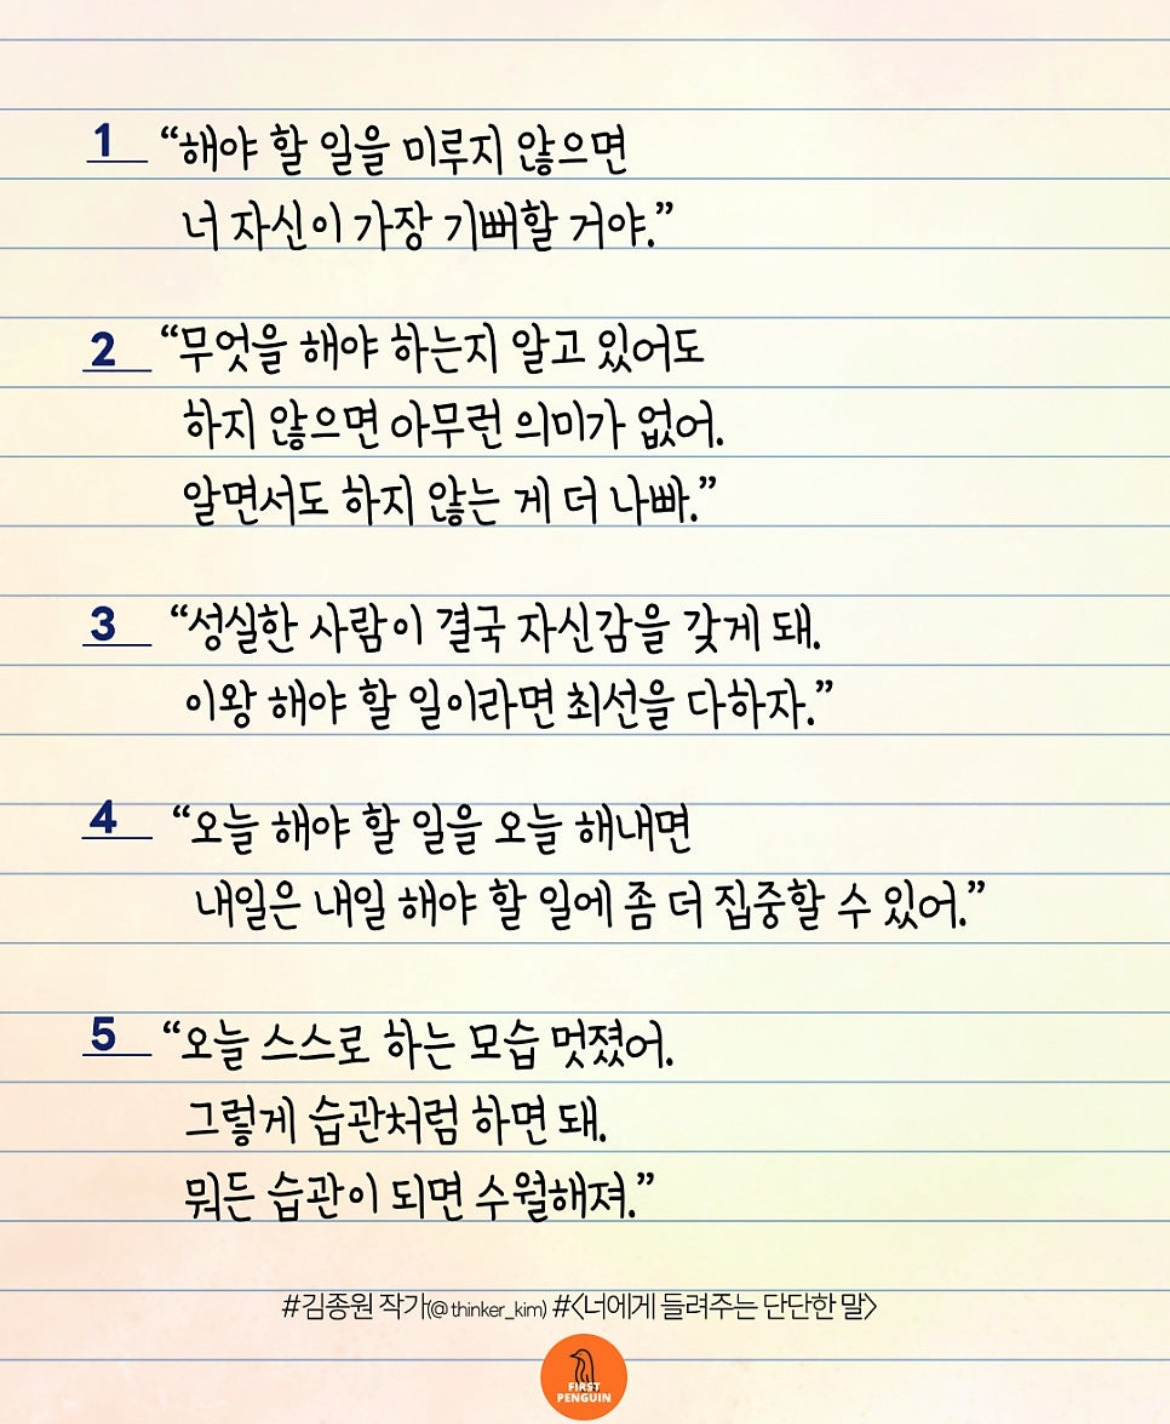 1 “해야 할 일을 미루지 않으면
너 자신이 가장 기뻐할 거야.”
2 “무엇을 해야 하는지 알고 있어도
하지 않으면 아무런 의미가 없어.
알면서도 하지 않는 게 더 나빠.”
3 “성실한 사람이 결국 자신감을 갖게 돼.
이왕 해야 할 일이라면 최선을 다하자.”
4 “오늘 해야 할 일을 오늘 해내면
내일은 내일 해야 할 일에 좀 더 집중할 수 있어.”
5 “오늘 스스로 하는 모습 멋졌어.
그렇게 습관처럼 하면 돼.
뭐든 습관이 되면 수월해져.”
#김종원 작가(@thinker_kim) #<너에게 들려주는 단단한 말>
FIRST
PENGUIN